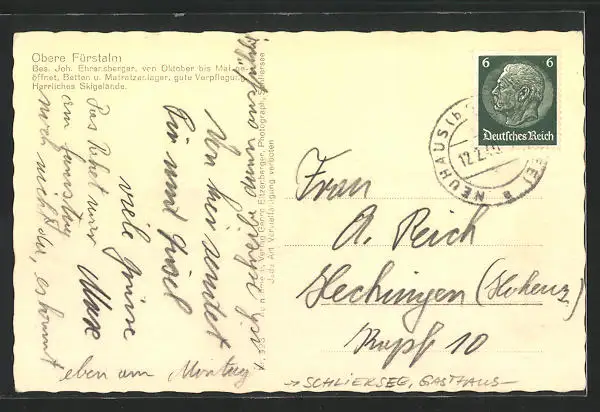 Obere Fürstalm
Bes. Joh. Ehrensberger, von Oktober bis Mai ge-
öffnet, Betten u. Matratzenlager, gute Verpflegung
Herrliches Skigelände.
Von hier sendet
Dir und
viele Grüsse
Max
Das Paket war
am Samstag
noch nicht da, es kommt
eben am Montag
ich schreibe dann
Verlag Georg Ritzerberger, Photograph, Schliersee
Jede Art Vervielfältigung verboten
6 6
Deutsches Reich
NEUHAUS (b.
12.2.40
Frau
A. Reich
Hechingen (Hohenz)
10
→ SCHLIERSEE, GASTHAUS